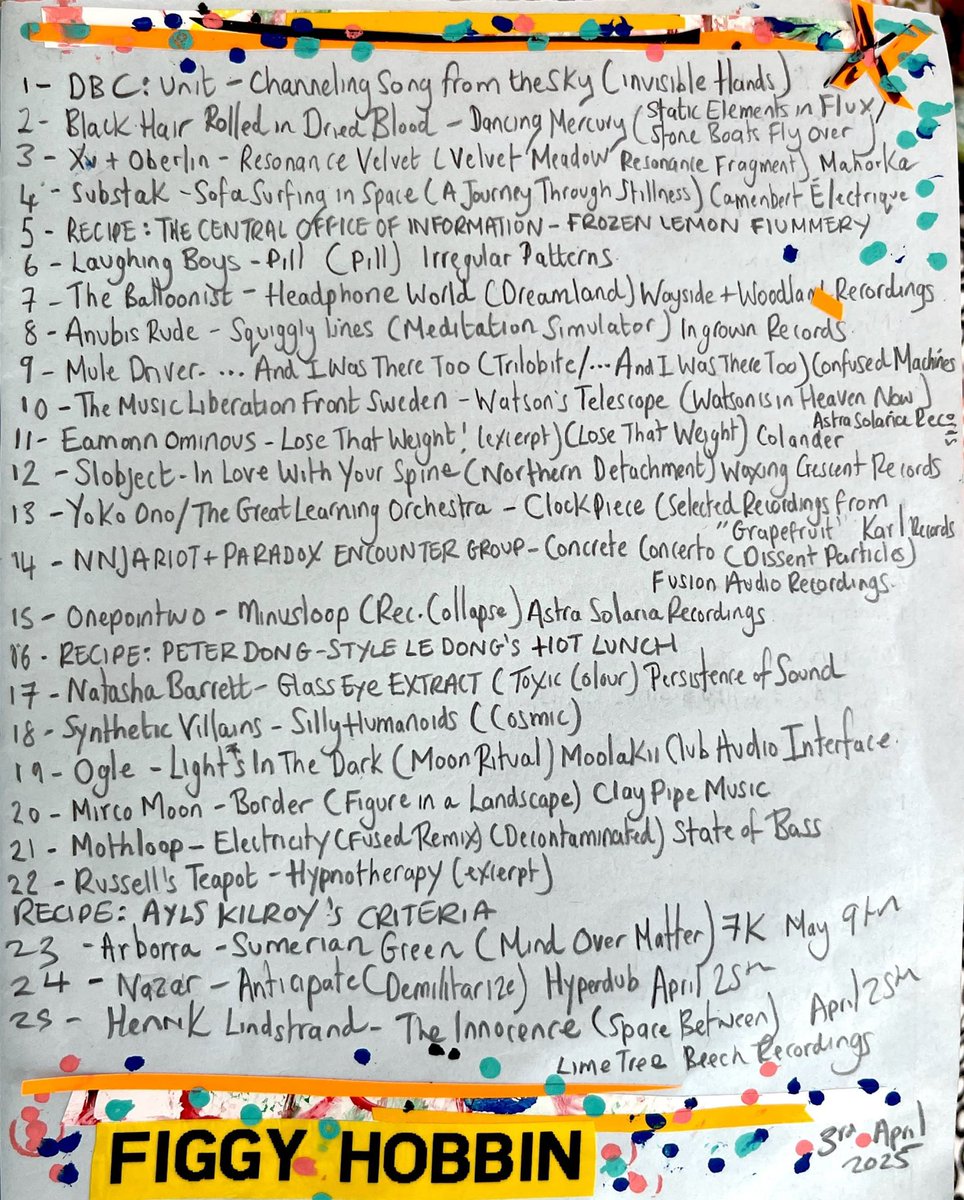 1 - DBC: Unit - Channeling Song from the Sky (Invisible Hands)
2 - Black Hair Rolled in Dried Blood - Dancing Mercury (Static Elements in Flux/
Stone Boats Fly Over
3 - Xu + Oberlin - Resonance Velvet (Velvet Meadow Resonance Fragment) Mahorka
4 - Substak - Sofa Surfing in Space (A Journey Through Stillness) Camenbert Électrique
5 - RECIPE: THE CENTRAL OFFICE OF INFORMATION - FROZEN LEMON FlUMMERY
6 - Laughing Boys - Pill (Pill) Irregular Patterns
7 - The Balloonist - Headphone World (Dreamland) Wayside + Woodland Recordings
8 - Anubis Rude - Squiggly Lines (Meditation Simulator) Ingrown Records
9 - Mule Driver - ... And I Was There Too (Trilobite/... And I Was There Too) Confused Machines
10 - The Music Liberation Front Sweden - Watson's Telescope (Watson is in Heaven Now)
Astra Solaria Recs
11 - Eamonn Ominous - Lose That Weight! (excerpt) (Lose That Weight) Colander
12 - Slobject - In Love With Your Spine (Northern Detachment) Waxing Crescent Records
13 - Yoko Ono/The Great Learning Orchestra - Clock Piece (Selected Recordings from
"Grapefruit" Karl Records
14 - NNJA RIOT + PARADOX ENCOUNTER GROUP - Concrete Concerto (Dissent Particles)
Fusion Audio Recordings.
15 - Onepointwo - Minusloop (Rec. Collapse) Astra Solaria Recordings
16 - RECIPE: PETER DONG-STYLE LE DONG'S HOT LUNCH
17 - Natasha Barrett - Glass Eye EXTRACT (Toxic Colour) Persistence of Sound
18 - Synthetic Villains - Silly Humanoids (Cosmic)
19 - Ogle - Light's In The Dark (Moon Ritual) Moolakii Club Audio Interface.
20 - Mirco Moon - Border (Figure in a Landscape) Clay Pipe Music
21 - Mothloop - Electricity (Fused Remix) (Decontaminated) State of Bass
22 - Russell's Teapot - Hypnotherapy (excerpt)
RECIPE: AYLS KILROY'S CRITERIA
23 - Arborra - Sumerian Green (Mind Over Matter) 7K May 9th
24 - Nazar - Anticipate (Demilitarize) Hyperdub April 25th
25 - Henrik Lindstrand - The Innocence (Space Between) April 25th
Lime Tree Beech Recordings
FIGGY HOBBIN
3rd April
2025